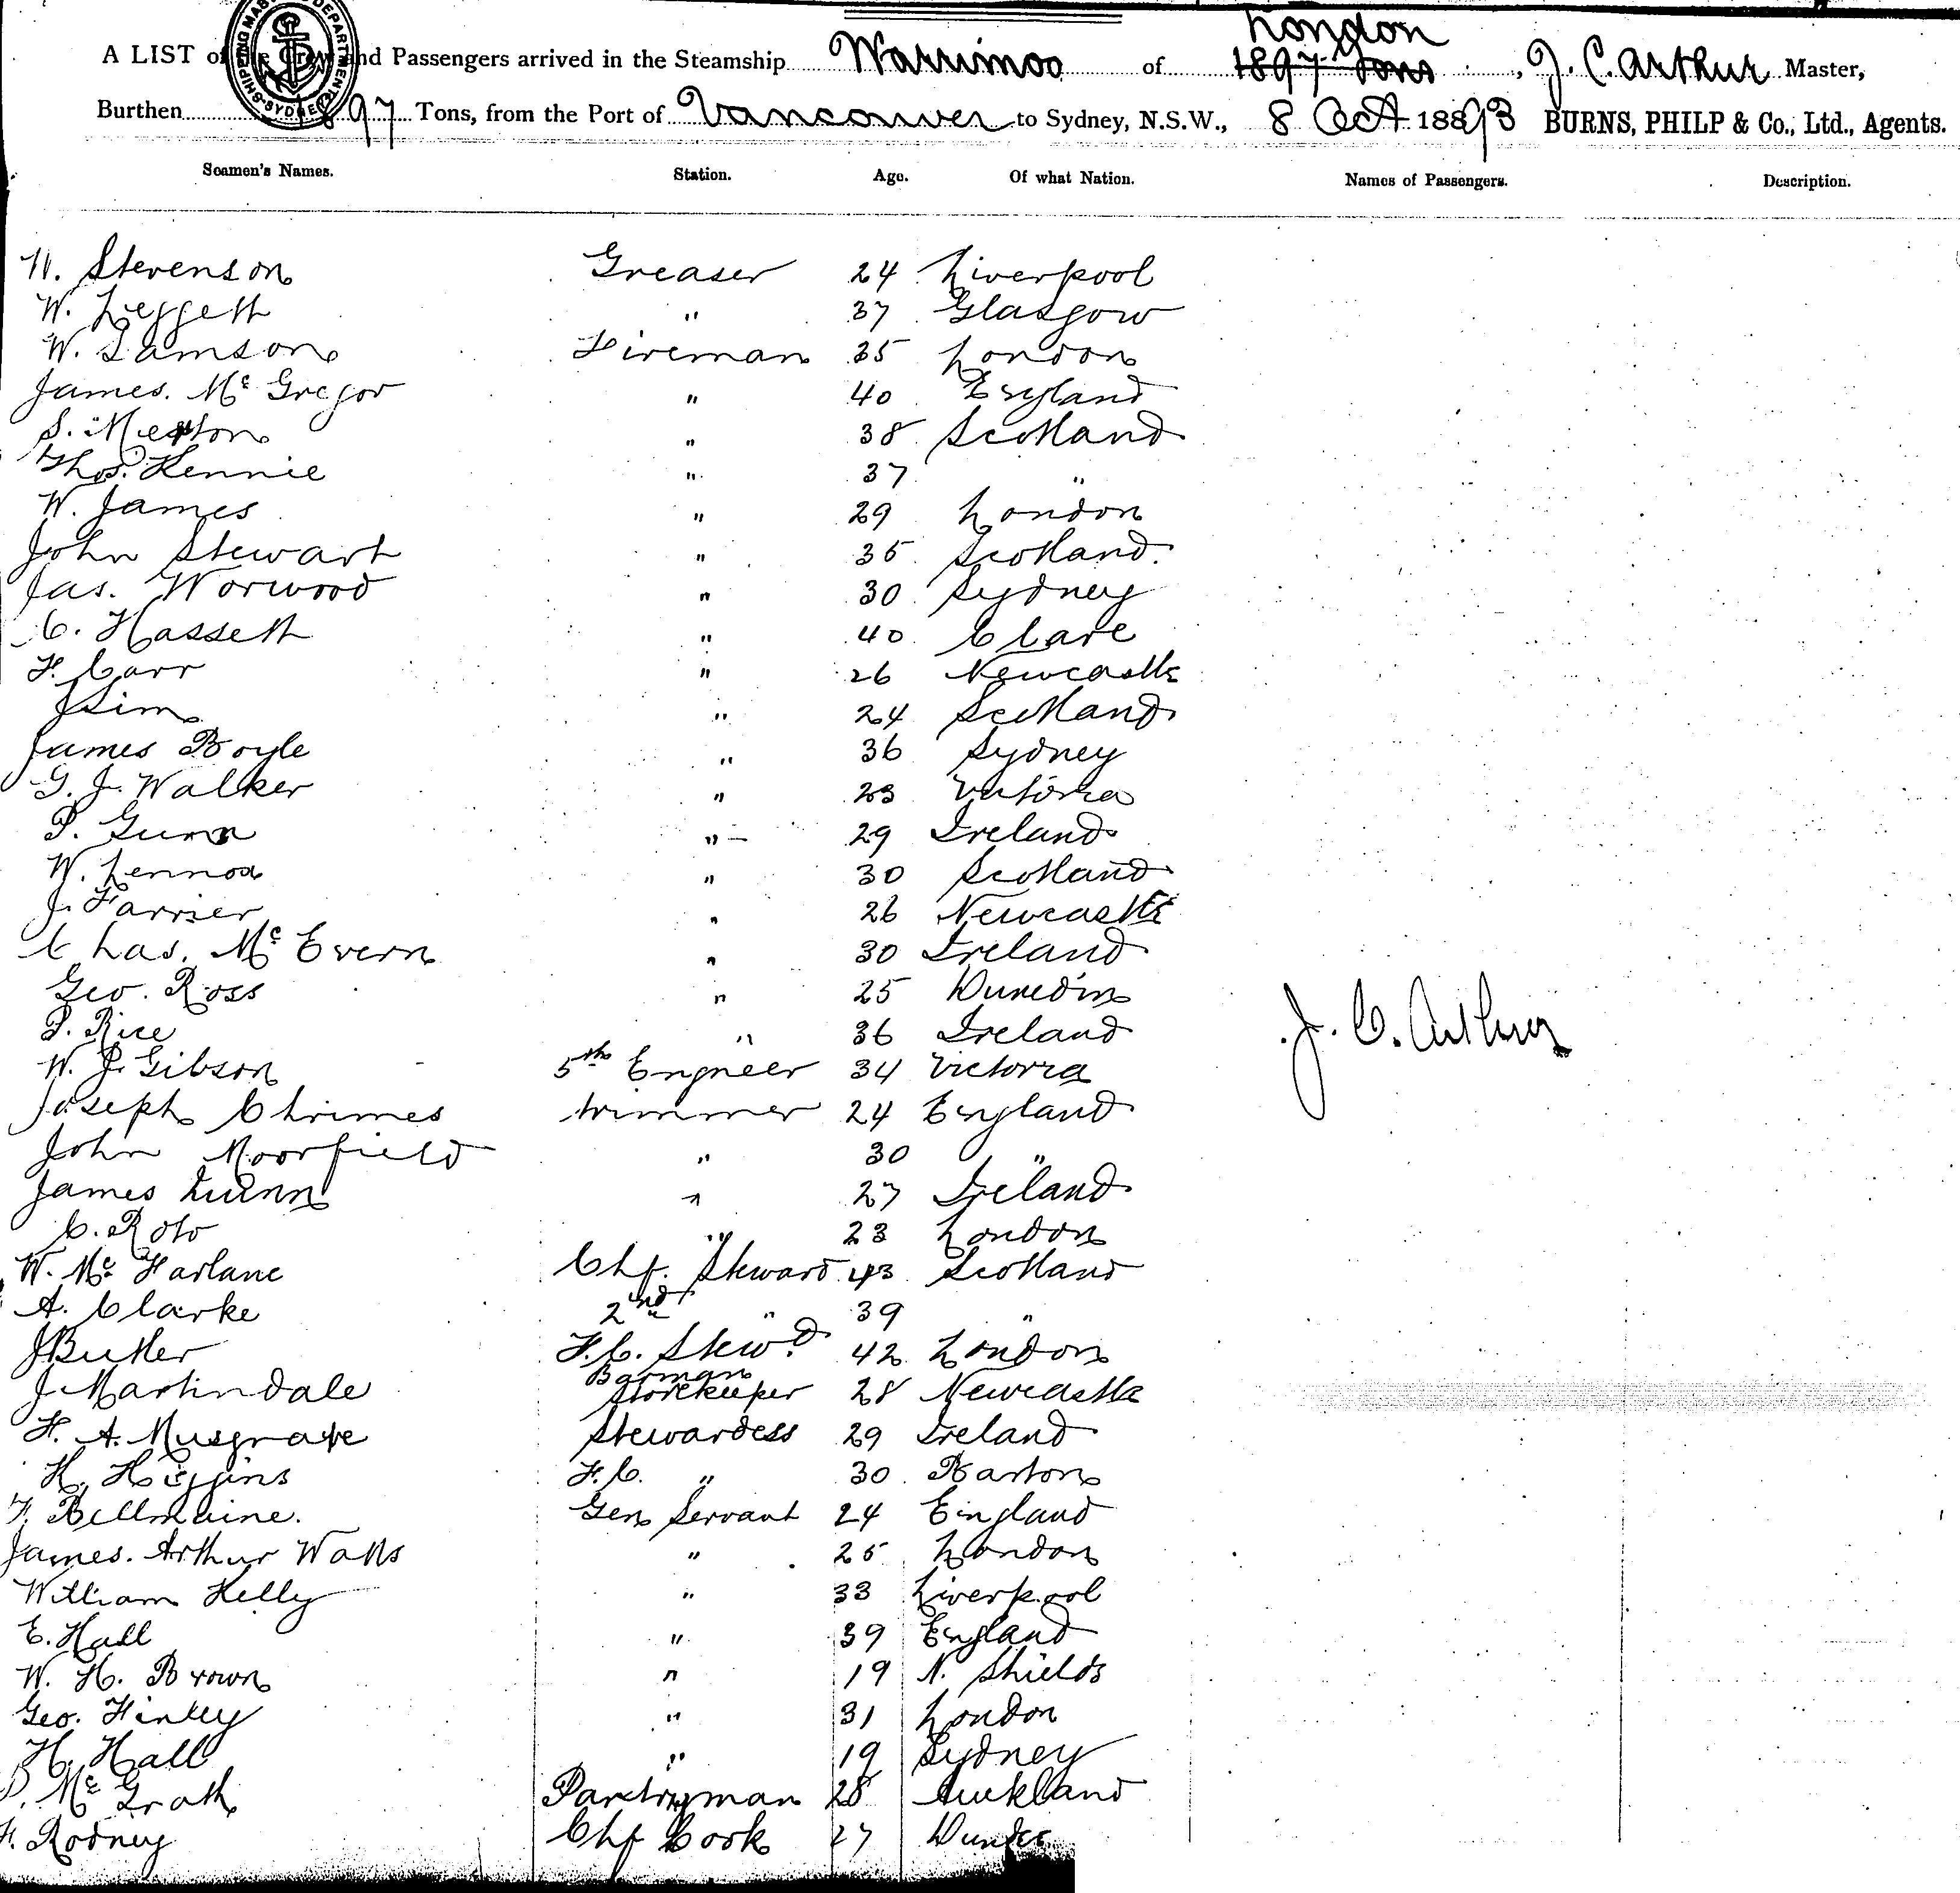 London
A LIST of the Crew and Passengers arrived in the Steamship Warrimoo of 1897 Tons, J. C. Arthur Master,
Burthen 1897 Tons, from the Port of Vancouver to Sydney, N.S.W., 8 Oct 1893 BURNS, PHILP & Co., Ltd., Agents.
Seamen's Names. Station. Age. Of what Nation. Names of Passengers. Description.
W. Stevenson Greaser 24 Liverpool
W. Leggett " 37 Glasgow
W. Samson Fireman 35 London
James. Mc Gregor " 40 England
S. " 38 Scotland
Thos. Rennie " 37 "
W. James " 29 London
John Stewart " 35 Scotland.
Jas. Worwood " 30 Sydney
C. Hassett " 40 Clare
F. Carr " 26 Newcastle
J Sim " 24 Scotland
James Boyle " 36 Sydney
G. J. Walker " 23 Victoria
P. Gunn " - 29 Ireland
W. Lennox " 30 Scotland
J. Farrier " 26 Newcastle
Chas. Mc Evern " 30 Ireland
Geo. Ross " 25 Dunedin
P. Rice " 36 Ireland
J. C. Arthur
W. J. Gibson 5th Engneer 34 Victoria
Joseph Chrimes trimmer 24 England
John Moorfield " 30 "
James Lunn " 27 Ireland
C. " 23 London
W. Mc Farlane Chf. Steward 43 Scotland
A. Clarke 2nd " 39 "
J Butler F.C. Stewd. 42 London
J. Martindale Barman Storekeeper 28 Newcastle
F. A. Musgrave Stewardess 29 Ireland
H. Higgins F.C. " 30 Barton
F. Bellmaine. Gen Servant 24 England
James. Arthur Watts " 25 London
William Kelly " 33 Liverpool
E. Hall " 39 England
W. H. Brown " 19 N. Shields
Geo. Finley " 31 London
H. Hall " 19 Sydney
P. Mc Grath Pantryman 28 Auckland
F. Rodney Chf Cook 27 Dundee